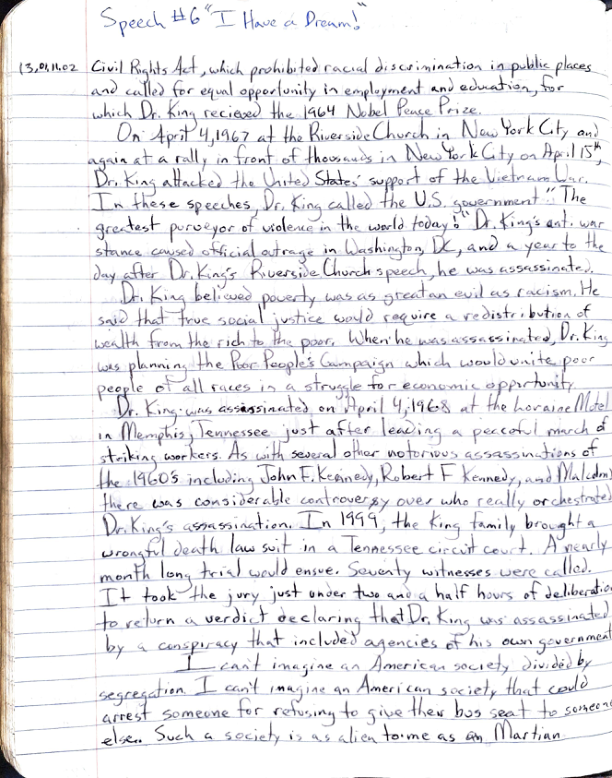 Speech #6 "I Have a Dream!"
13,01,11.02 Civil Rights Act, which prohibited racial discrimination in public places
and called for equal opportunity in employment and education, for
which Dr. King recieved the 1964 Nobel Peace Prize.
On April 4, 1967 at the Riverside Church in New York City and
again at a rally in front of thousands in New York City on April 15th,
Dr. King attacked the United States' support of the Vietnam War.
In these speeches, Dr. King called the U.S. government "The
greatest purveyor of violence in the world today!" Dr. King's anti-war
stance caused official outrage in Washington, DC, and a year to the
day after Dr. King's Riverside Church speech, he was assassinated.
Dr. King believed poverty was as great an evil as racism. He
said that true social justice would require a redistribution of
wealth from the rich to the poor. When he was assassinated, Dr. King
was planning the Poor People's Campaign which would unite poor
people of all races in a struggle for economic opportunity.
Dr. King was assassinated on April 4, 1968 at the Loraine Motel
in Memphis, Tennessee just after leading a peaceful march of
striking workers. As with several other notorious assassinations of
the 1960's including John F. Kennedy, Robert F Kennedy, and Malcolm
there was considerable controversy over who really orchestrated
Dr. King's assassination. In 1999, the King family brought a
wrongful death law suit in a Tennessee circuit court. A nearly
month long trial would ensue. Seventy witnesses were called.
It took the jury just under two and a half hours of deliberation
to return a verdict declaring that Dr. King was assassinated
by a conspiracy that included agencies of his own government
I can't imagine an American society divided by
segregation. I can't imagine an American society that could
arrest someone for refusing to give their bus seat to someone
else. Such a society is as alien to me as an Martian